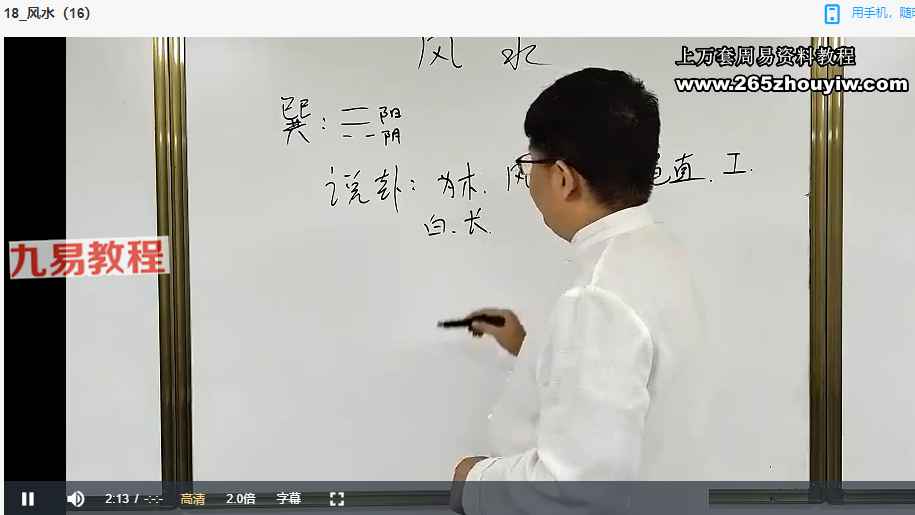 18_风水（16）
用手机，随
上万套周易资料教程
www.265zhouyiw.com
风 水
巽：☴ 阳
阴
说卦：为木. 风 直. 工.
白. 长.
九易教程
2:13 / -:-:-
高清
2.0倍
字幕